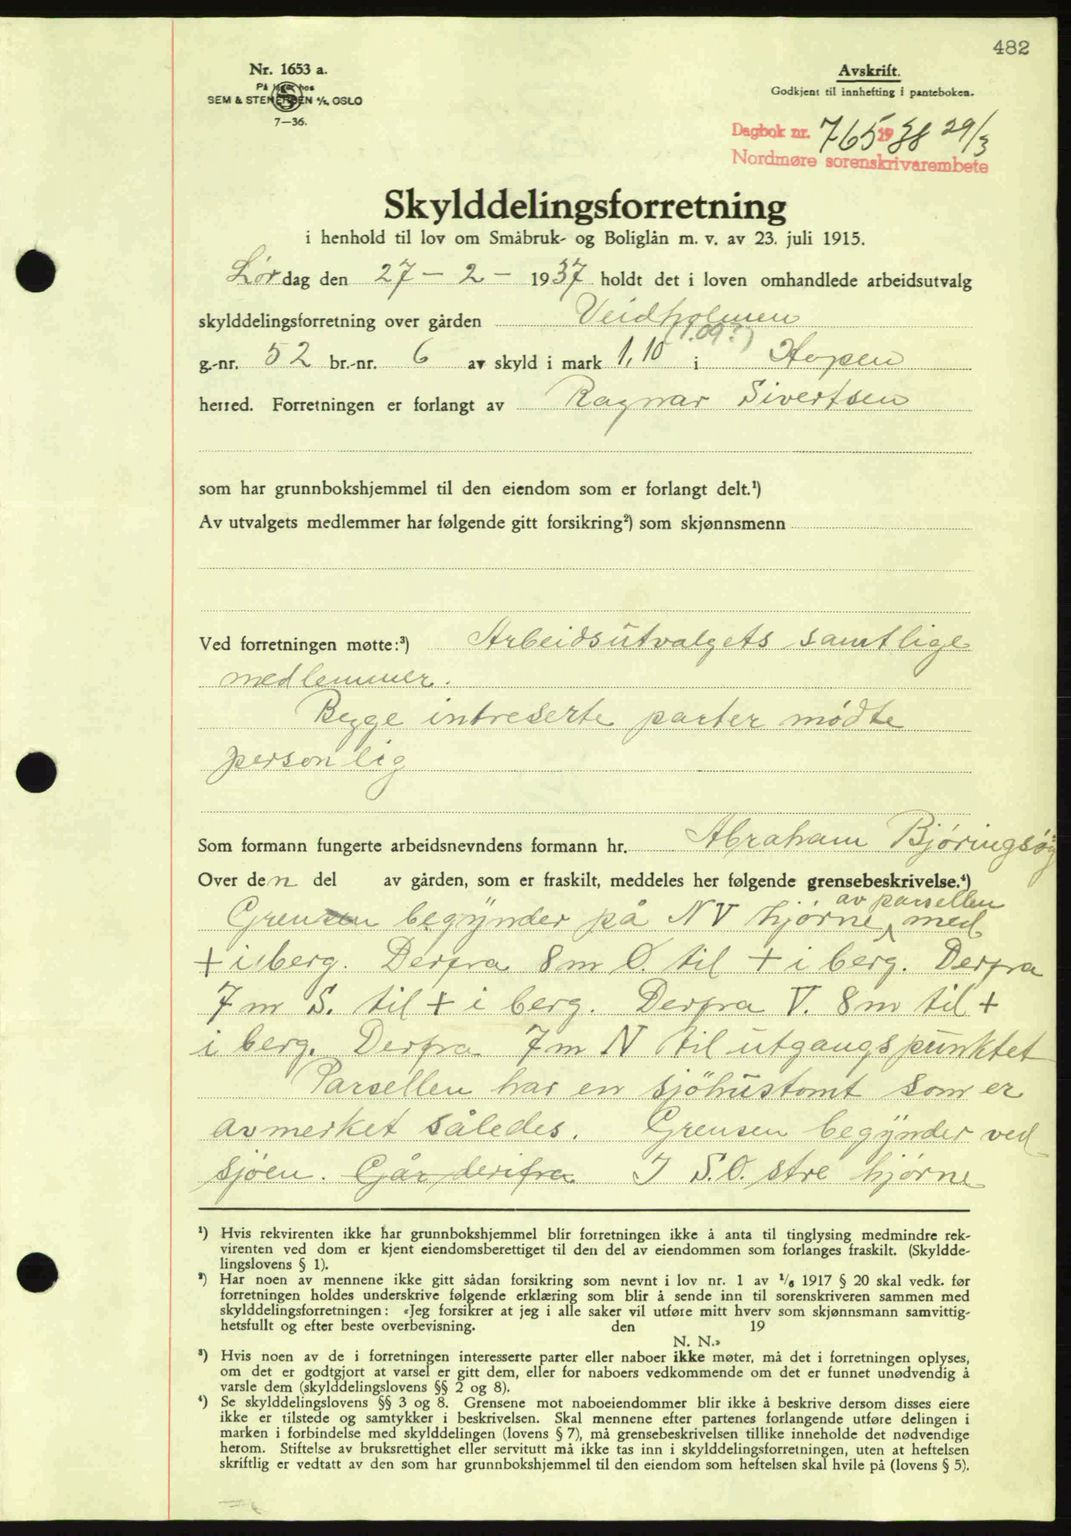 482
Nr. 1653 a.
På lager hos
SEM & STENERSEN A/S, OSLO
7—36.
Avskrift.
Godkjent til innhefting i panteboken.
Dagbok nr. 765 1938 29/3
Nordmøre sorenskrivarembete
Skylddelingsforretning
i henhold til lov om Småbruk- og Boliglån m. v. av 23. juli 1915.
Lørdag den 27 - 2 - 1937 holdt det i loven omhandlede arbeidsutvalg
skylddelingsforretning over gården Veidholmen
(1.09?)
g.-nr. 52 br.-nr. 6 av skyld i mark 1,10 i Hopen
herred. Forretningen er forlangt av Ragnar Sivertsen
som har grunnbokshjemmel til den eiendom som er forlangt delt.¹)
Av utvalgets medlemmer har følgende gitt forsikring²) som skjønnsmenn
Ved forretningen møtte:³) Arbeidsutvalgets samtlige
medlemmer.
Begge intreserte parter mødte
personlig
Som formann fungerte arbeidsnevndens formann hr. Abraham Bjøringsøy
Over den del av gården, som er fraskilt, meddeles her følgende grensebeskrivelse.⁴)
av parsellen
Grensen begynder på NV hjørne, med
+ i berg. Derfra 8m Ø. til + i berg. Derfra
7m S. til + i berg. Derfra V. 8m til +
i berg. Derfra 7m N til utgangspunktet
Parsellen har en sjöhustomt som er
avmerket således. Grensen begynder ved
sjøen. Går derifra I S.Ø. stre hjørne
¹) Hvis rekvirenten ikke har grunnbokshjemmel blir forretningen ikke å anta til tinglysing medmindre rek-
virenten ved dom er kjent eiendomsberettiget til den del av eiendommen som forlanges fraskilt. (Skyldde-
lingslovens § 1).
²) Har noen av mennene ikke gitt sådan forsikring som nevnt i lov nr. 1 av 1/6 1917 § 20 skal vedk. før
forretningen holdes underskrive følgende erklæring som blir å sende inn til sorenskriveren sammen med
skylddelingsforretningen: «Jeg forsikrer at jeg i alle saker vil utføre mitt hverv som skjønnsmann samvittig-
hetsfullt og efter beste overbevisning. den 19
N. N.»
³) Hvis noen av de i forretningen interesserte parter eller naboer ikke møter, må det i forretningen oplyses,
om det er godtgjort at varsel er gitt dem, eller for naboers vedkommende om det er funnet unødvendig å
varsle dem (skylddelingslovens §§ 2 og 8).
⁴) Se skylddelingslovens §§ 3 og 8. Grensene mot naboeiendommer blir ikke å beskrive dersom disses eiere
ikke er tilstede og samtykker i beskrivelsen. Skal mennene efter partenes forlangende utføre delingen i
marken i forbindelse med skylddelingen (lovens § 7), må grensebeskrivelsen tillike inneholde det nødvendige
herom. Stiftelse av bruksrettighet eller servitutt må ikke tas inn i skylddelingsforretningen, uten at heftelsen
skriftlig er vedtatt av den som har grunnbokshjemmel til den eiendom som heftelsen skal hvile på (lovens § 5).